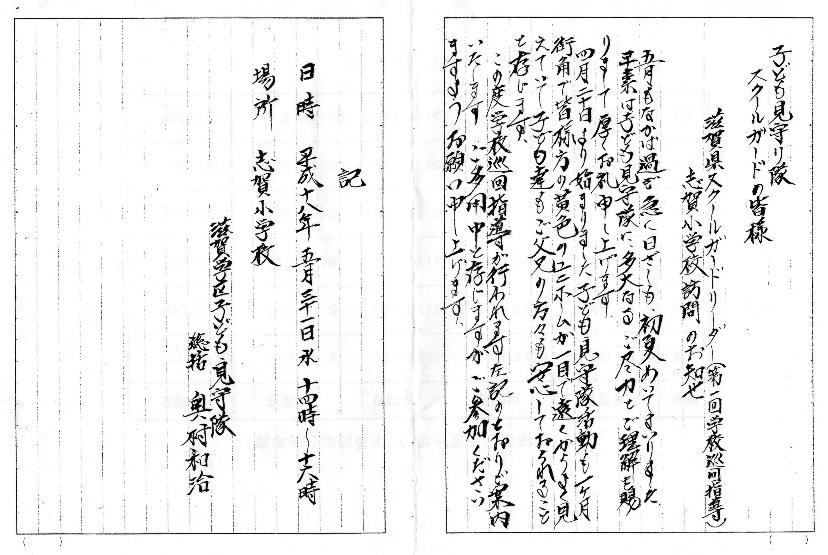 子ども見守り隊
スクールガードの皆様
滋賀県スクールガードリーダー(第一回学校巡回指導)
志賀小学校訪問のお知せ
五月もなかば過ぎ急に日ざしも初夏めいてまいりました
早素は子ども見守隊に多大なるご尽力とご理解を賜
りまして厚くお礼申し上げます
四月二十日より始まりました子ども見守隊活動も一ヶ月
街角で皆様方の黄色のユニホームが一目で遠くからよく見
えていて子ども達もご父兄の方々も安心しておられること
と存じます。
この度学校巡回指導が行われます左記のとおりご案内
いたします ご多用中と存じますがご参加ください
ますようお願い申し上げます。
記
日時 平成十八年 五月三十一日 水 十四時〜十六時
場所 志賀小学校
滋賀学区子ども見守隊
総括 奥村和治